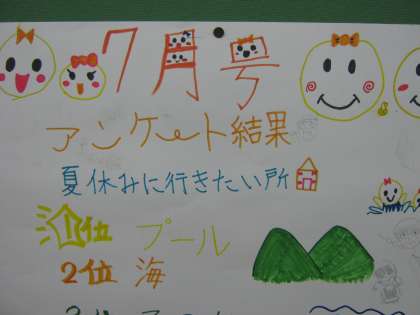 7月号
アンケート結果
夏休みに行きたい所
1位 プール
2位 海